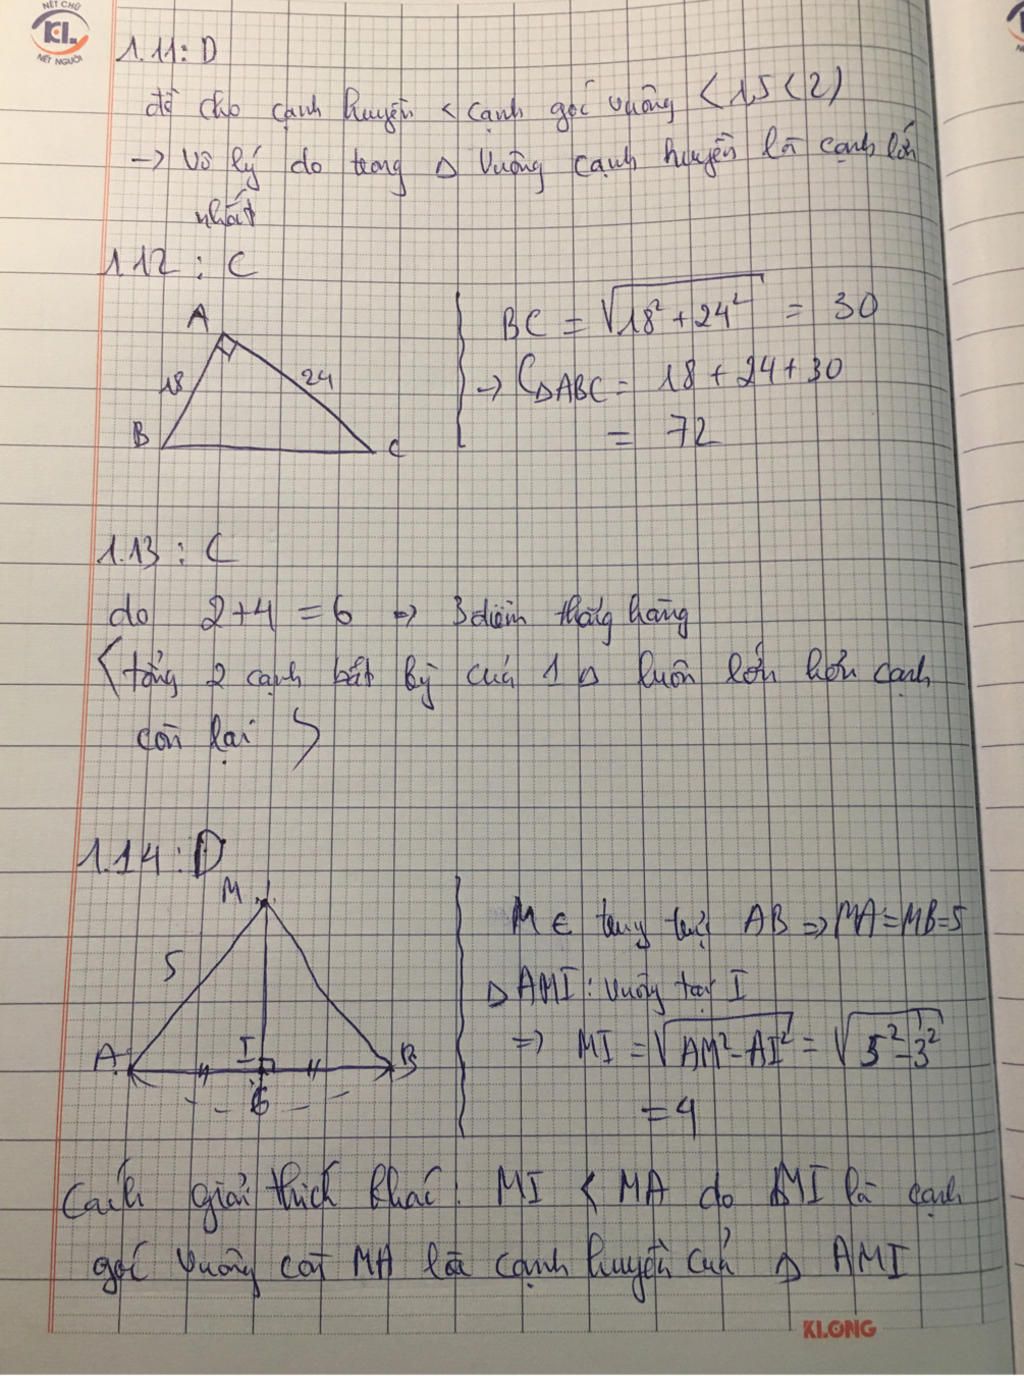 NÉT CHỮ
KL
NÉT NGƯỜI
1.11: D
đề cho cạnh huyền < cạnh góc vuông < 1,5 < 2)
-> vô lý do trong Δ vuông cạnh huyền là cạnh lớn
nhất
1.12 : C
A
18
24
B
C
BC = √18² + 24² = 30
-> CΔABC = 18 + 24 + 30
= 72
1.13 : C
do 2+4 = 6 => 3 điểm thẳng hàng
(tổng 2 cạnh bất kỳ của 1 Δ luôn lớn hơn cạnh
còn lại )
1.14 : D
M
5
A
I
B
6
M ∈ trung trực AB => MA = MB = 5
Δ AMI : vuông tại I
=> MI = √AM² - AI² = √5² - 3²
= 4
Cách giải thích khác : MI < MA do MI là cạnh
góc vuông còn MA là cạnh huyền của Δ AMI
KLONG